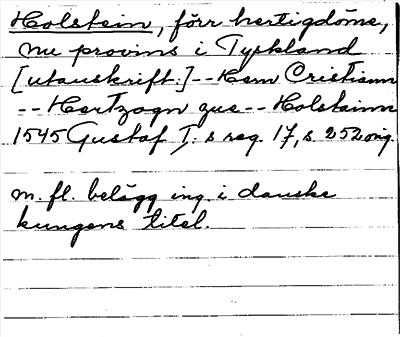 Holstein, förr hertigdöme,
nu provins i Tyskland
[utanskrift:] -- Hern Cristiann
-- Hertzogn zue -- Holstainn
1545 Gustaf I:s reg. 17, s. 252 orig.
m. fl. belägg ing. i danske
kungens titel.